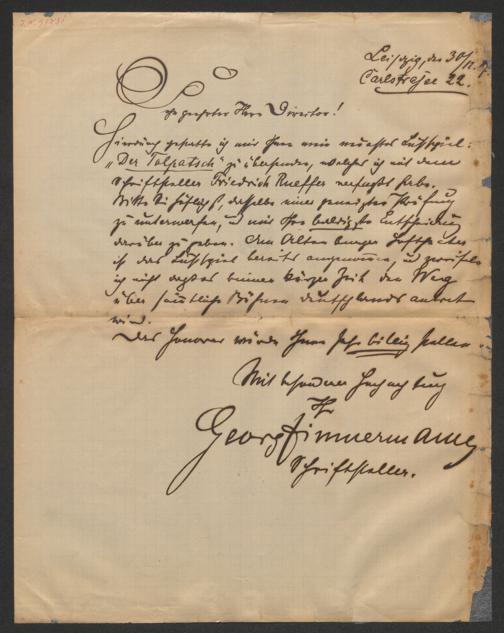 Leipzig, den 30/11.
Carlstrasse 22.
Sehr geehrter Herr Director!
Hierdurch gestatte ich mir Ihnen mein neuestes Lustspiel:
„Der Tolpatsch" zu übersenden, welches ich mit dem
Schriftsteller Friedrich Rueffer verfasst habe.
Bitte Sie höflichst, dasselbe einer geneigten Prüfung
zu unterwerfen, und mir Ihre baldigste Entscheidung
darüber zu geben. Am Altenburger Hoftheater
ist das Lustspiel bereits angenommen, und zweifele
ich nicht dass es binnen kurzer Zeit den Weg
über sämtliche Bühnen Deutschlands antreten
wird.
Das Honorar würde Ihnen sehr billig stellen.
Mit besonderer Hochachtung
Ihr
Georg Zimmermann
Schriftsteller.